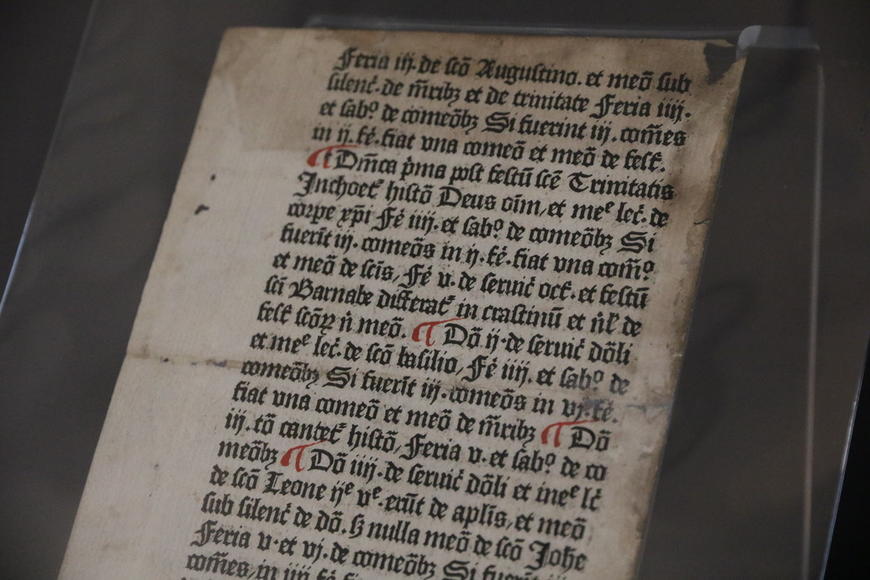 Feria iij. de scō Augustino. et meō sub
silenc̄. de m̄ribꝫ et de trinitate Feria iiij.
et sabº de comeōbꝫ Si fuerint iij. com̄es
in ij. fē. fiat vna comeō et meō de fest̄.
¶ Dn̄ica p̄ma post festū scē Trinitatis
Inchoet̄ histō Deus oīm, et meᵉ lec̄. de
corpe xp̄i Fē iiij. et sabº de comeōbꝫ Si
fuerīt iij. comeōs in ij. fē. fiat vna com̄º
et meō de scīs, Fē v. de seruic̄ oct̄. et festū
scī Barnabe differat̄ in crastinū et nīl de
fest̄ scōꝝ n̄ meō. ¶ Dō ij. de seruic̄ dōli
et meᵉ lec̄. de scō basilio, Fē iiij. et sabº de
comeōbꝫ Si fuerīt iij. comeōs in vj. fē.
fiat vna comeō et meō de m̄ribꝫ ¶ Dō
iij. tō cantet̄ histō, Feria v. et sabº de co
meōbꝫ ¶ Dō iiij. de seruic̄ dōli et meᵉ lc̄
de scō Leone ijᵉ vᵉ. erūt de aplīs, et meō
sub silenc̄ de dō. sꝫ nulla meō de scō Joh̄e
Feria v. et vj. de comeōbꝫ Si fuerīt iij.
com̄es, in iiij fē. fiat